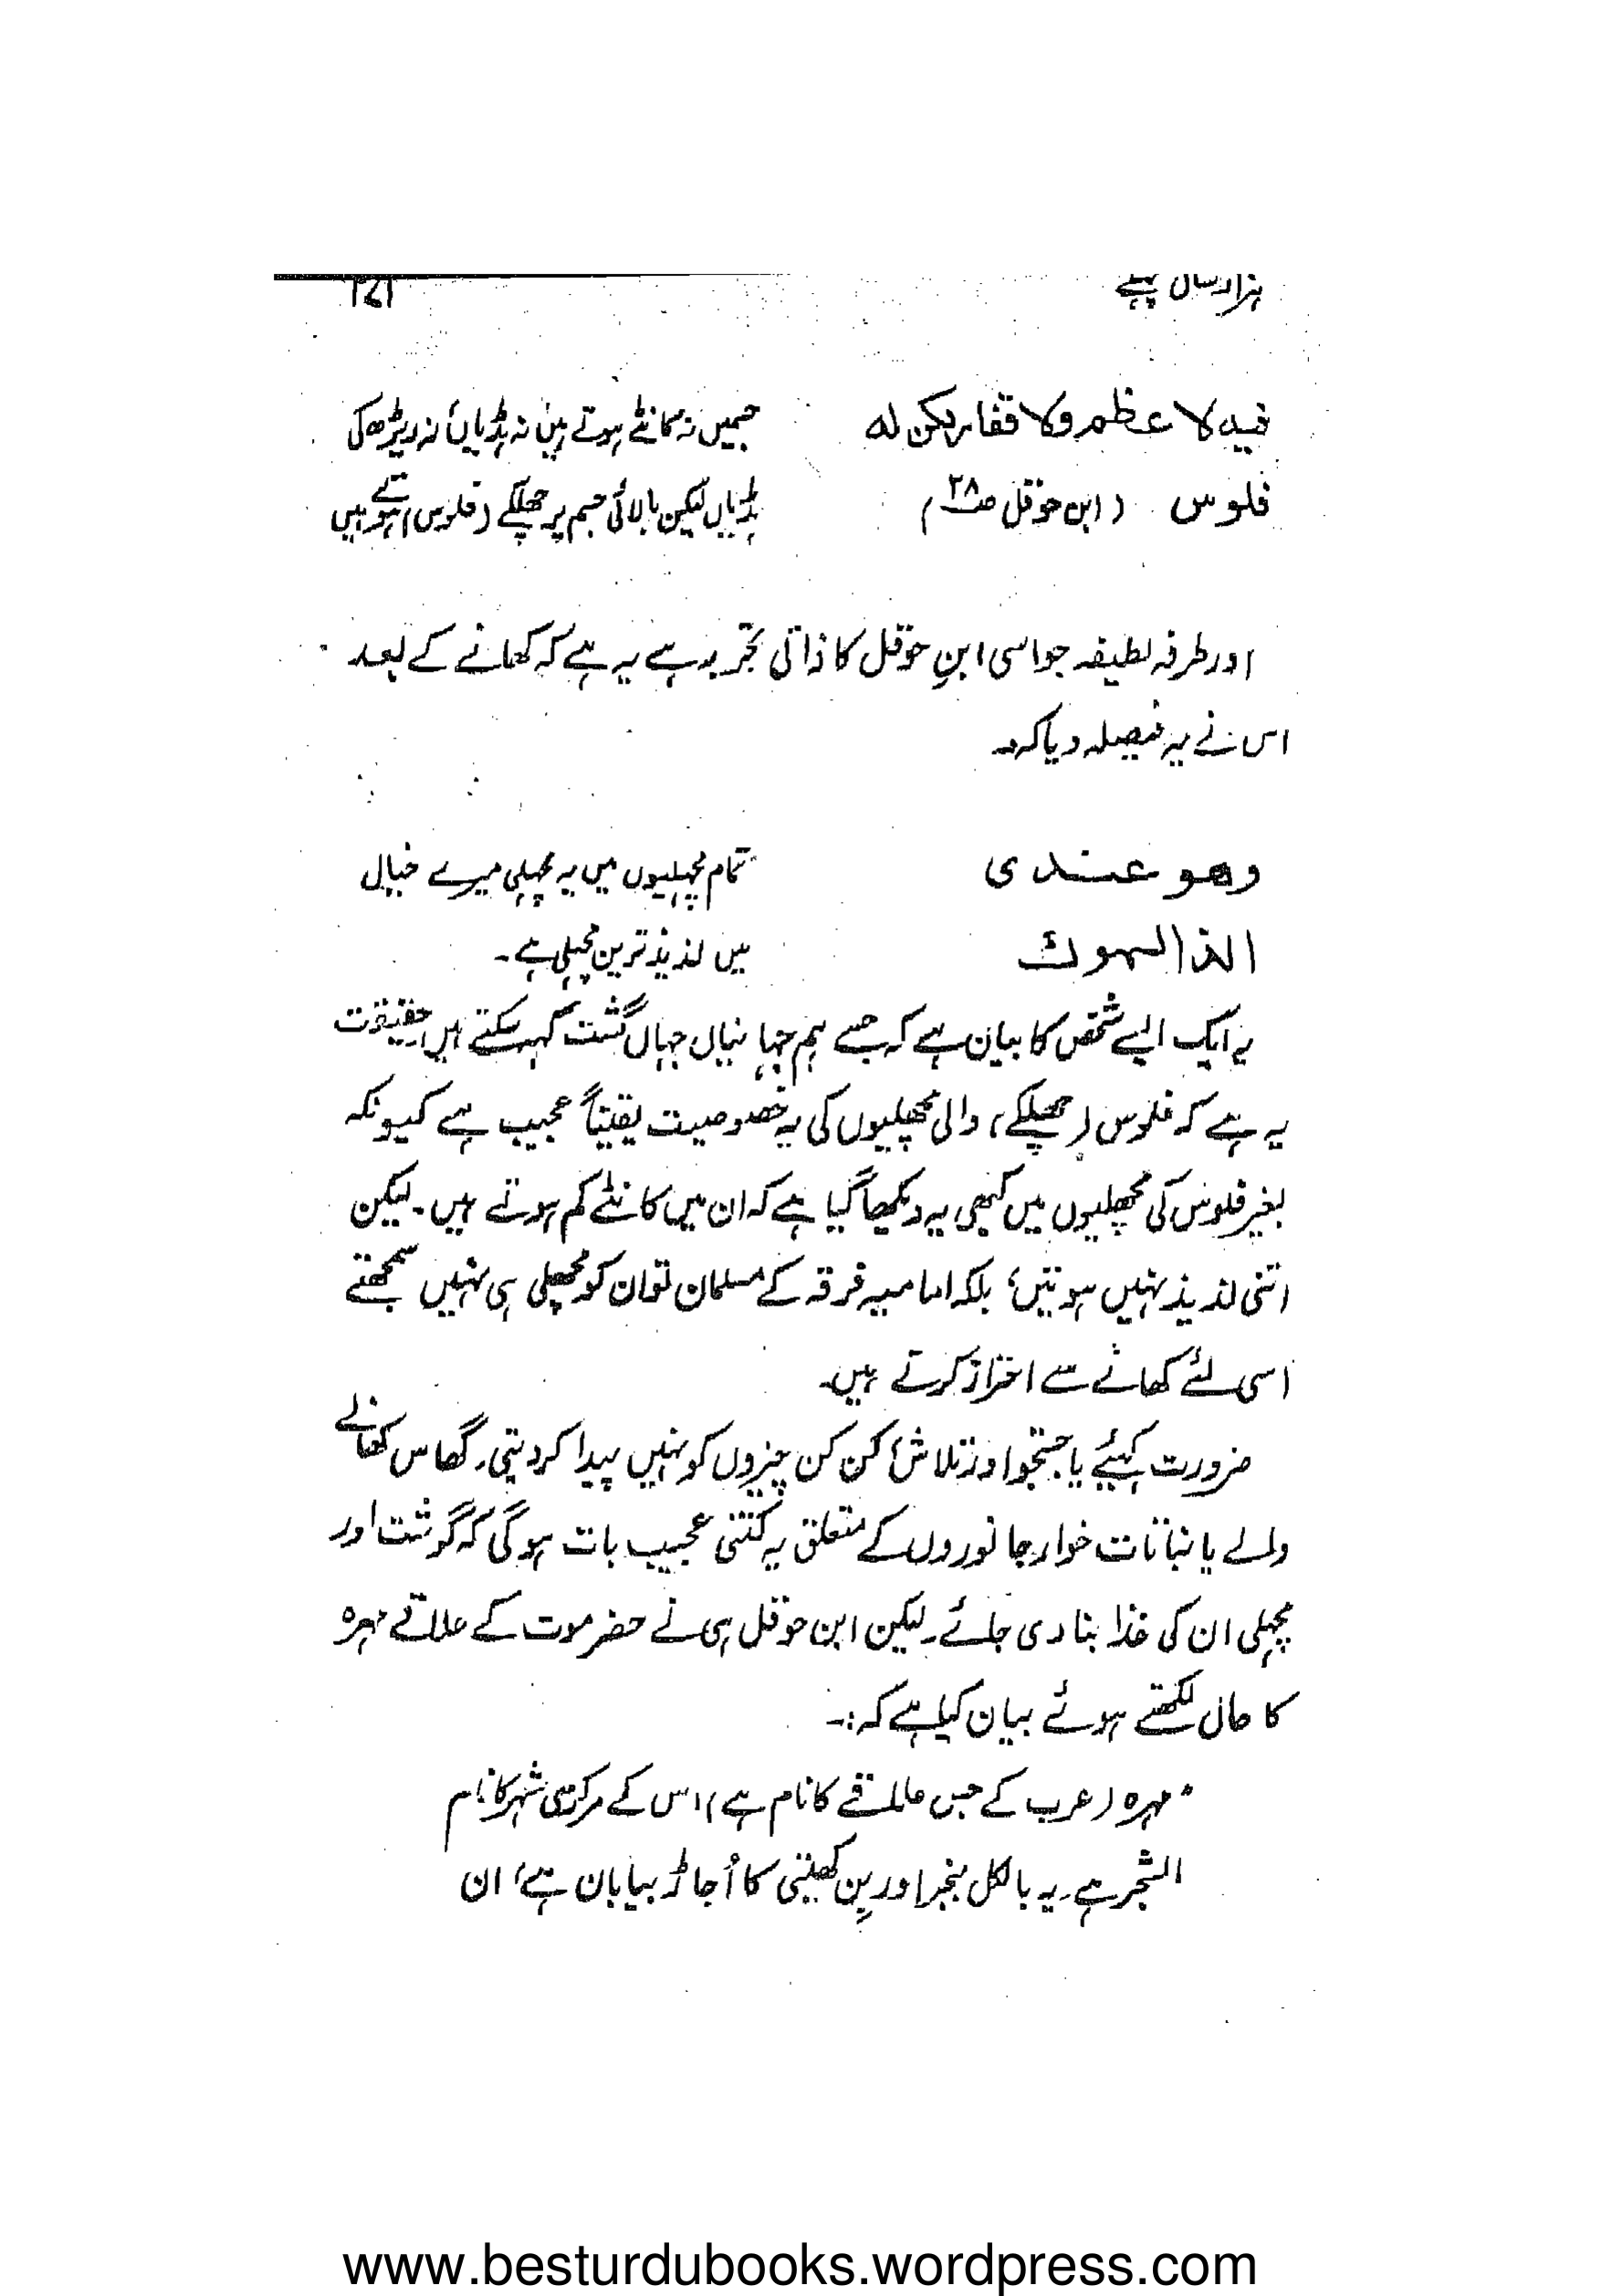 ہزار سال پہلے
۱۷۱
فیہ لا عظم ولا فقار یکن لہ
فلوس (ابن حوقل صـ ۳۸)
جسمیں نہ کانٹے ہوتے ہیں نہ ہڈیاں، نہ ریڑھ کی
ہڈیاں لیکن بالائی جسم پر چھلکے (فلوس) ہوتے ہیں
اور طرفہ لطیفہ جو اسی ابنِ حوقل کا ذاتی تجربہ ہے یہ ہے کہ کھانے کے بعد
اس نے یہ فیصلہ دیا کہ۔
وھو عندی
الذ السموک
تمام مچھلیوں میں یہ مچھلی میرے خیال
میں لذیذ ترین مچھلی ہے۔
یہ ایک ایسے شخص کا بیان ہے کہ جسے ہم جہانیاں جہاں گشت کہہ سکتے ہیں، حقیقت
یہ ہے کہ فلوس (چھلکے) والی مچھلیوں کی یہ خصوصیت یقیناً عجیب ہے کیونکہ
بغیر فلوس کی مچھلیوں میں کبھی یہ دیکھا گیا ہے کہ ان میں کانٹے کم ہوتے ہیں۔ لیکن
اتنی لذیذ نہیں ہوتیں، بلکہ امامیہ فرقہ کے مسلمان تو ان کو مچھلی ہی نہیں سمجھتے
اسی لئے کھانے سے احتراز کرتے ہیں۔
ضرورت کہئیے یا جستجو اور تلاش، کن کن چیزوں کو نہیں پیدا کر دیتی۔ گھاس کھانے
والے یا نباتات خوار جانوروں کے متعلق یہ کتنی عجیب بات ہوگی کہ گوشت اور
مچھلی ان کی غذا بنا دی جائے۔ لیکن ابن حوقل ہی نے حضر موت کے علاقے مہرہ
کا حال لکھتے ہوئے بیان کیا ہے کہ:۔
"مہرہ (عرب کے جس علاقے کا نام ہے) اس کے مرکزی شہر کا نام
الشجر ہے۔ یہ بالکل بنجر اور بِن کھیتی کا اُجاڑ بیابان ہے، ان
www.besturdubooks.wordpress.com